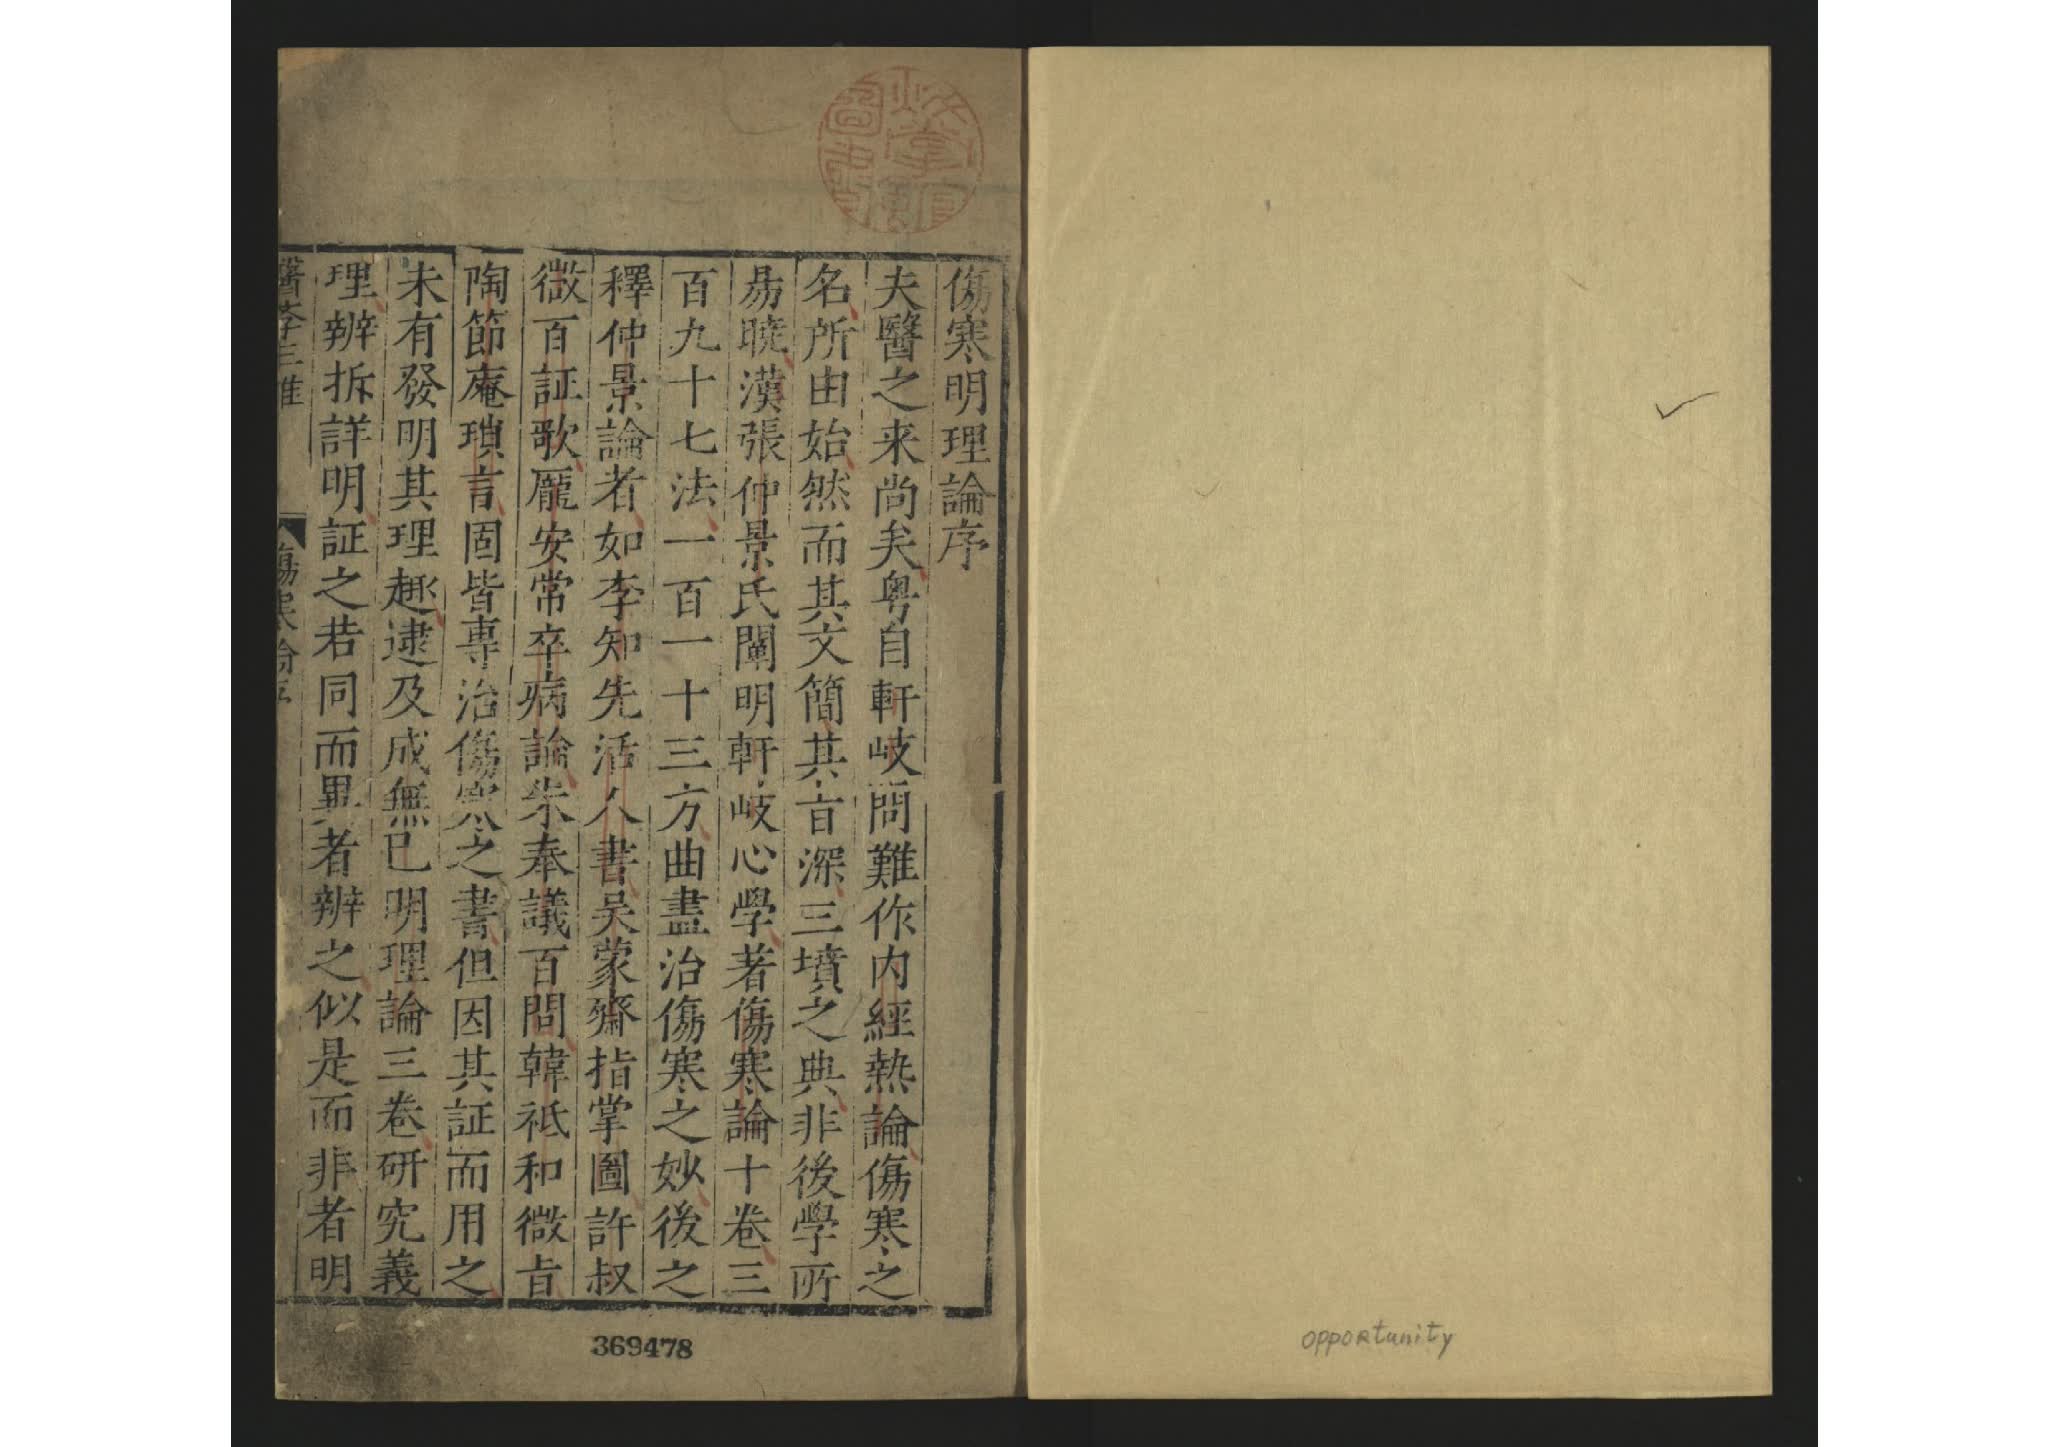 傷寒明理論序
夫醫之来尚矣粤自軒岐問難作内經熱論傷寒之
名所由始然而其文簡其㫖深三墳之典非後學所
昜暁漢張仲景氏闡明軒岐心學著傷寒論十卷三
百九十七法一百一十三方曲盡治傷寒之妙後之
釋仲景論者如李知先活人書吴蒙齋指掌圖許叔
微百証歌龐安常卒病論朱奉議百問韓祗和微㫖
陶節庵瑣言固皆專治傷寒之書但因其証而用之
未有發明其理趣逮及成無已明理論三卷研究義
理辨拆詳明証之若同而異者辨之似是而非者明
傷寒論序
369478
opportunity